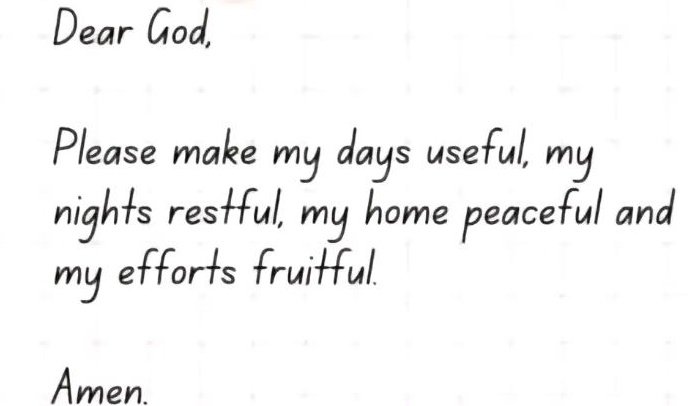 Dear God,
Please make my days useful, my
nights restful, my home peaceful and
my efforts fruitful.
Amen.